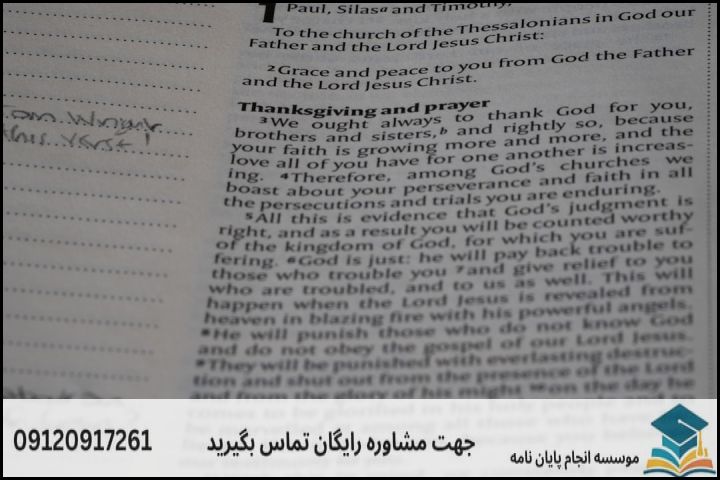 1 Paul, Silasa and Timothy,
To the church of the Thessalonians in God our
Father and the Lord Jesus Christ:
2Grace and peace to you from God the Father
and the Lord Jesus Christ.
Thanksgiving and prayer
3We ought always to thank God for you,
brothers and sisters,b and rightly so, because
your faith is growing more and more, and the
love all of you have for one another is increas-
ing. 4Therefore, among God's churches we
boast about your perseverance and faith in all
the persecutions and trials you are enduring.
5All this is evidence that God's judgment is
right, and as a result you will be counted worthy
of the kingdom of God, for which you are suf-
fering. 6God is just: he will pay back trouble to
those who trouble you 7and give relief to you
who are troubled, and to us as well. This will
happen when the Lord Jesus is revealed from
heaven in blazing fire with his powerful angels.
8He will punish those who do not know God
and do not obey the gospel of our Lord Jesus.
9They will be punished with everlasting destruc-
tion and shut out from the presence of the Lord
and from the glory of his might 10on the day he
this verse!
جهت مشاوره رایگان تماس بگیرید
09120917261
موسسه انجام پایان نامه